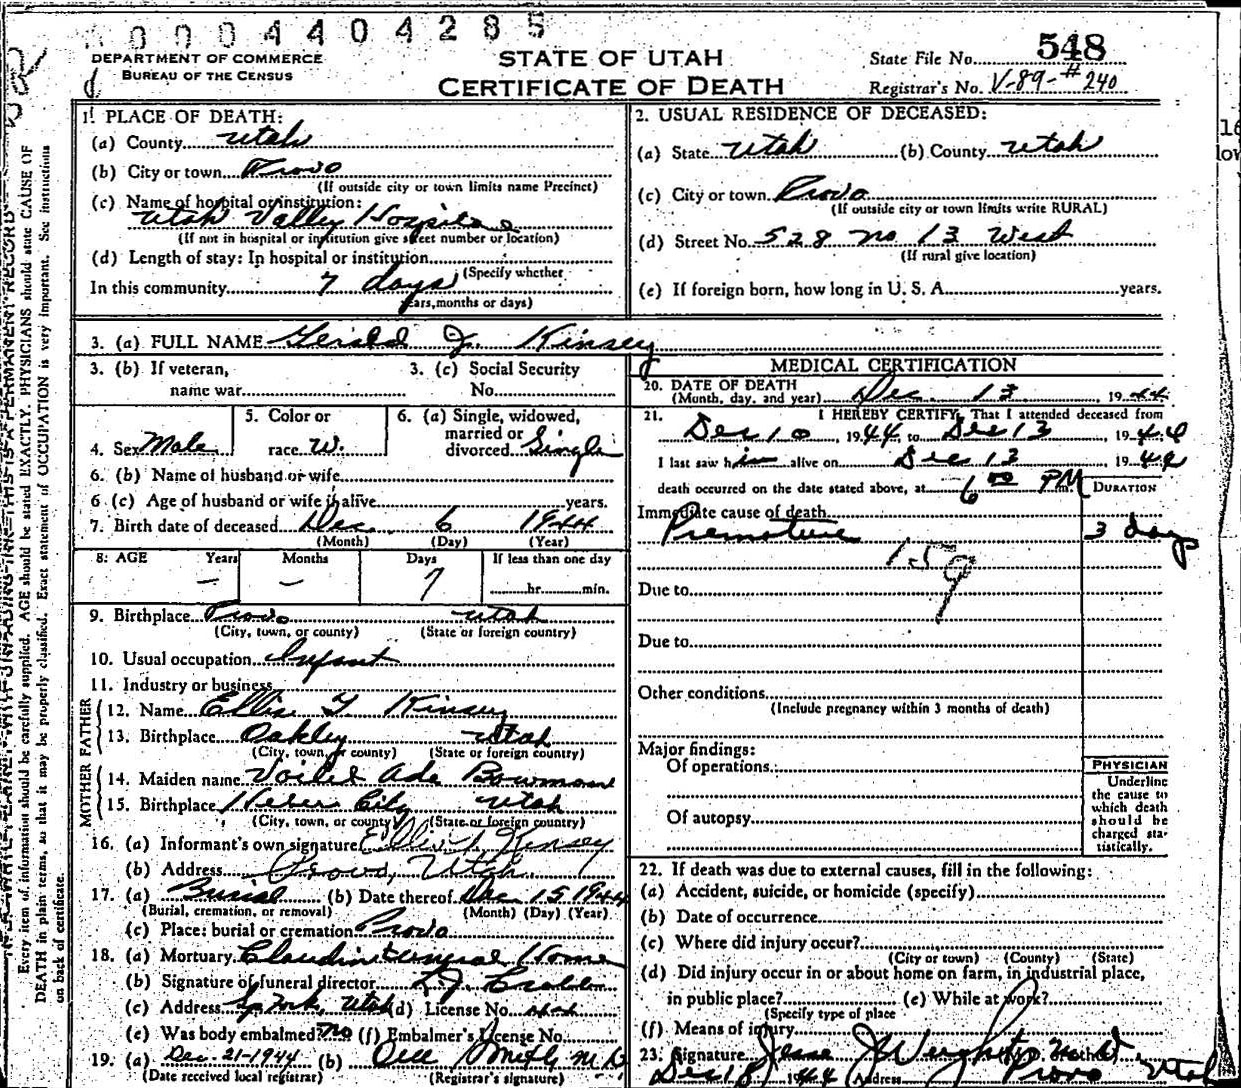 0 0 0 4 4 0 4 2 8 5
DEPARTMENT OF COMMERCE
BUREAU OF THE CENSUS
STATE OF UTAH
CERTIFICATE OF DEATH
State File No. 548
Registrar's No. V-89-#240
1. PLACE OF DEATH:
(a) County Utah
(b) City or town Provo
(If outside city or town limits name Precinct)
(c) Name of hospital or institution:
Utah Valley Hospital
(If not in hospital or institution give street number or location)
(d) Length of stay: In hospital or institution
(Specify whether
In this community 7 days
years, months or days)
2. USUAL RESIDENCE OF DECEASED:
(a) State Utah (b) County Utah
(c) City or town Provo
(If outside city or town limits write RURAL)
(d) Street No. 528 no 13 West
(If rural give location)
(e) If foreign born, how long in U. S. A. years.
3. (a) FULL NAME Gerald J. Kinsey
3. (b) If veteran,
name war
3. (c) Social Security
No.
4. Sex Male
5. Color or
race W.
6. (a) Single, widowed,
married or
divorced Single
6. (b) Name of husband or wife
6 (c) Age of husband or wife if alive years.
7. Birth date of deceased Dec. 6 1944
(Month) (Day) (Year)
8. AGE Years Months Days If less than one day
— — 7 hr. min.
9. Birthplace Provo Utah
(City, town, or county) (State or foreign country)
10. Usual occupation Infant
11. Industry or business
FATHER
12. Name Ellis Kinsey
13. Birthplace Oakley Utah
(City, town, or county) (State or foreign country)
MOTHER
14. Maiden name Voilet Ada Bowman
15. Birthplace Heber City Utah
(City, town, or county) (State or foreign country)
16. (a) Informant's own signature Ellis Kinsey
(b) Address Provo, Utah
17. (a) Burial (b) Date thereof Dec 15 1944
(Burial, cremation, or removal) (Month) (Day) (Year)
(c) Place: burial or cremation Provo
18. (a) Mortuary Claudin Funeral Home
(b) Signature of funeral director
(c) Address Utah (d) License No.
(e) Was body embalmed? No (f) Embalmer's License No.
19. (a) Dec. 21-1944 (b) M D
(Date received local registrar) (Registrar's signature)
MEDICAL CERTIFICATION
20. DATE OF DEATH
(Month, day, and year) Dec. 13, 1944
21. I HEREBY CERTIFY, That I attended deceased from
Dec 10, 1944 to Dec 13 1944
I last saw him alive on Dec 13 1944
death occurred on the date stated above, at 6 00 PM m.
DURATION
Immediate cause of death
Premature 3 days
159
Due to
Due to
Other conditions
(Include pregnancy within 3 months of death)
Major findings:
Of operations
Of autopsy
PHYSICIAN
Underline
the cause to
which death
should be
charged sta-
tistically.
22. If death was due to external causes, fill in the following:
(a) Accident, suicide, or homicide (specify)
(b) Date of occurrence
(c) Where did injury occur?
(City or town) (County) (State)
(d) Did injury occur in or about home on farm, in industrial place,
in public place? (e) While at work?
(Specify type of place
(f) Means of injury
23. Signature Jesse J Weight
Dec 18 1944 Address Provo Utah
Every item of information should be carefully supplied. AGE should be stated EXACTLY. PHYSICIANS should state CAUSE OF
DEATH in plain terms, so that it may be properly classified. Exact statement of OCCUPATION is very important. See instructions
on back of certificate.